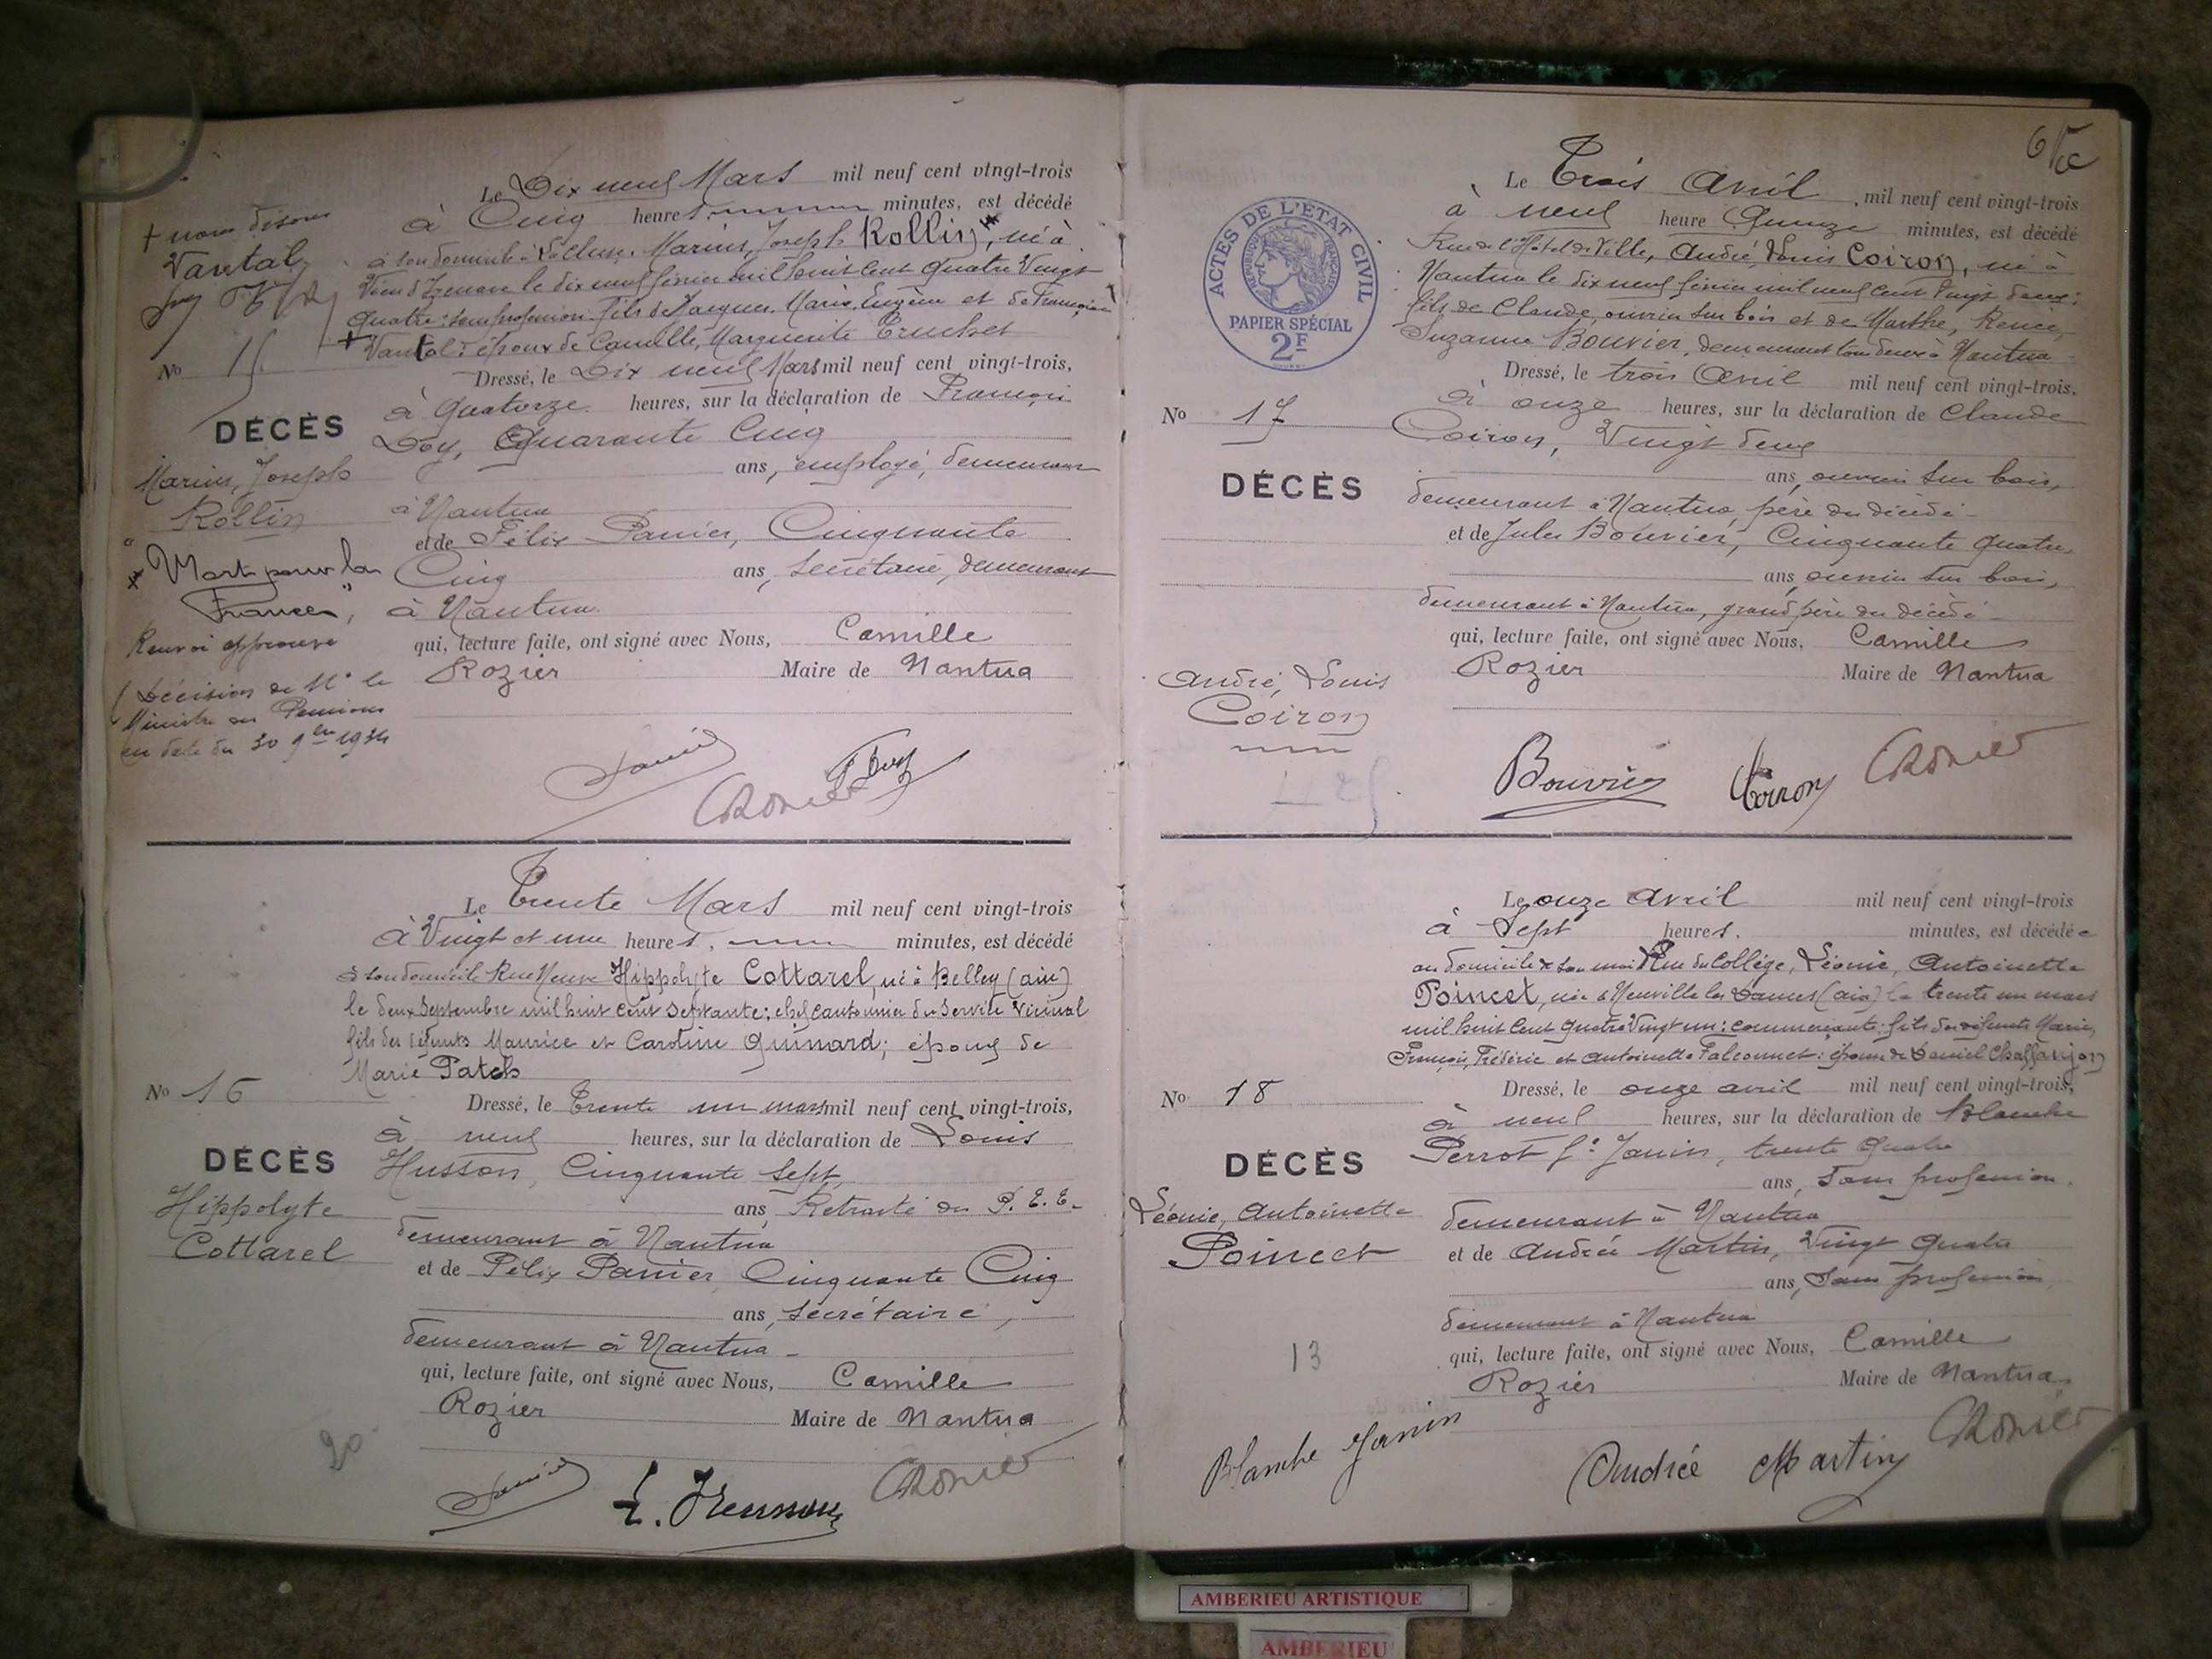 Le Dix neuf Mars mil neuf cent vingt-trois
à Cinq heures minutes, est décédé
à son domicile à Marius, Joseph Rollin, né à
Vieu d'Izenave le dix neuf février mil huit cent quatre Vingt
quatre: sans profession fils de Jacques, Marie, Eugène et de Françoise
+ Vantal: époux de Camille, Marguerite Truchet
Dressé, le Dix neuf Mars mil neuf cent vingt-trois,
à Quatorze heures, sur la déclaration de François
Doy, Quarante Cinq
ans, employé, demeurant
à Nantua
et de Félix Panier, Cinquante
Cinq ans, secrétaire, demeurant
à Nantua
qui, lecture faite, ont signé avec Nous, Camille
Rozier Maire de Nantua
+ nous disons
Vantal
No 15
DÉCÈS
Marius, Joseph
Rollin
* "Mort pour la
France",
Renvoi approuvé
(Décision de Mr le
Ministre des Pensions
en date du 30 9bre 1934
Panier
Le Trente Mars mil neuf cent vingt-trois
à Vingt et une heures, minutes, est décédé
à son domicile Rue Neuve Hippolyte Cottarel, né à Belley (ain)
le deux Septembre mil huit cent septante; chef cantonnier du Service Vicinal
fils des défunts Maurice et Caroline Guinard; époux de
Marie Patel
No 16
Dressé, le Trente un mars mil neuf cent vingt-trois,
à neuf heures, sur la déclaration de Louis
DÉCÈS
Husson, Cinquante Sept,
ans Retraité des P. T. T.
Hippolyte
Cottarel
demeurant à Nantua
et de Félix Panier, Cinquante Cinq
ans, secrétaire,
demeurant à Nantua
qui, lecture faite, ont signé avec Nous, Camille
Rozier Maire de Nantua
20
Panier L. Husson CRozier
6
ACTES DE L'ÉTAT CIVIL
RÉPUBLIQUE FRANÇAISE
PAPIER SPÉCIAL
2F
Le Trois Avril, mil neuf cent vingt-trois
à neuf heure Quinze minutes, est décédé
Rue de l'Hôtel de Ville, André, Louis Coiron, né à
Nantua le dix neuf février mil neuf cent vingt deux:
fils de Claude, ouvrier sur bois et de Marthe, Renée,
Suzanne Bouvier, demeurant tous deux à Nantua
Dressé, le trois Avril mil neuf cent vingt-trois.
à onze heures, sur la déclaration de Claude
No 17
Coiron, Vingt deux
ans, ouvrier sur bois,
DÉCÈS
demeurant à Nantua, père du décédé
et de Jules Bouvier, Cinquante quatre
ans, ouvrier sur bois,
demeurant à Nantua, grand père du décédé
qui, lecture faite, ont signé avec Nous, Camille
Rozier Maire de Nantua
André, Louis
Coiron
Bouvier Coiron CRozier
Le onze avril mil neuf cent vingt-trois
à Sept heures. minutes, est décédée
au domicile de son mari Rue du Collège, Léonie, Antoinette
Poincet, née à Neuville les Dames (ain) le trente un mars
mil huit cent quatre Vingt un: commerçante: fille des défunts Marie,
François, Frédéric et Antoinette Falconnet: épouse de Daniel Chaffanjon
Dressé, le onze avril mil neuf cent vingt-trois,
à neuf heures, sur la déclaration de Blanche
No 18
Perrot fe Janin, trente quatre
ans, sans profession.
DÉCÈS
Léonie, Antoinette
Poincet
demeurant à Nantua
et de Andrée Martin, Vingt quatre
ans, sans profession
demeurant à Nantua
qui, lecture faite, ont signé avec Nous, Camille
Rozier Maire de Nantua
13
Blanche Janin Andrée Martin CRozier
AMBERIEU ARTISTIQUE
AMBERIEU